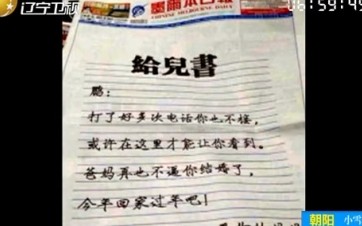 辽宁卫视
06:59:49
墨爾本日報
CHINESE MELBOURNE DAILY
給兒書
鹏：
打了好多次电话你也不接，
或许在这里才能让你看到。
爸妈再也不逼你结婚了，
今年回家过年吧！
朝阳 小雪